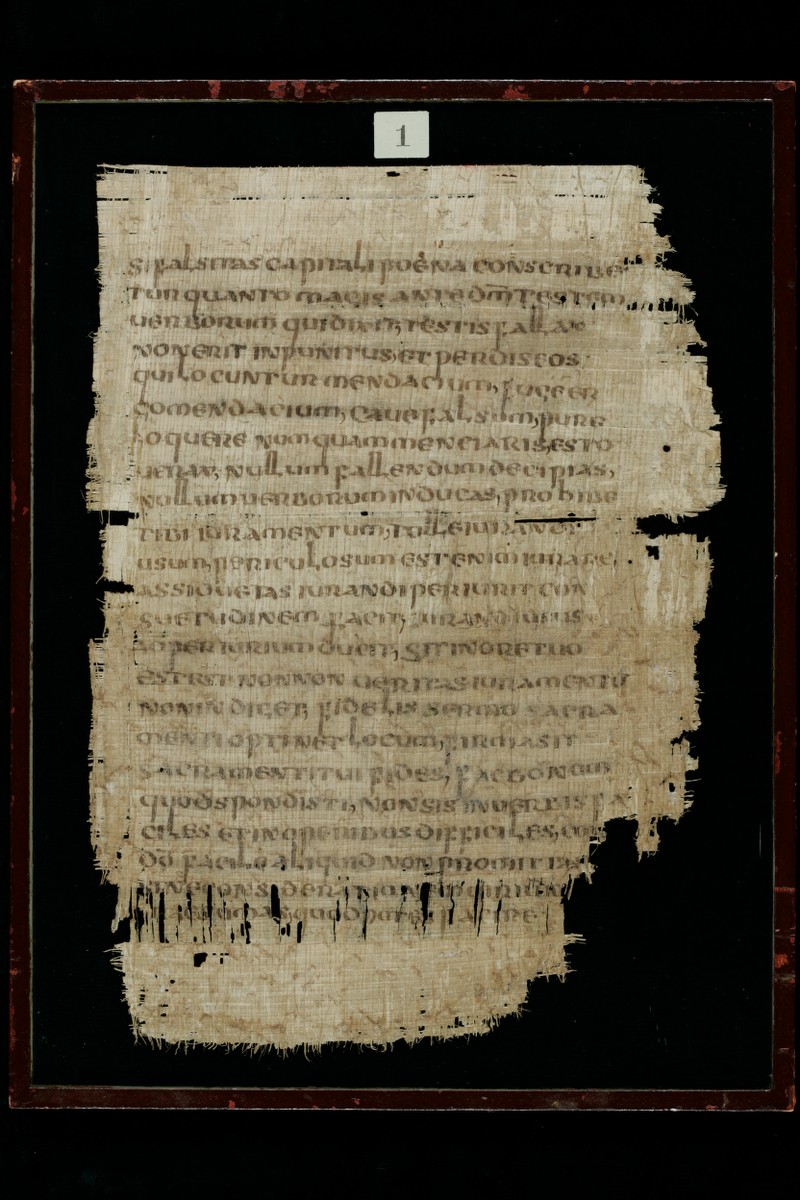 1
s; falsitas capitali poena conscribe
tur quanto magis ante dm̄ testem
uerborum qui dixit, testis fallax
non erit inpunitus, et perdis eos
qui locuntur mendacium, fuge er
go mendacium, caue falsum, pure
loquere numquam menciaris, esto
uerax, nullum fallendum decipias,
nullum uerborum inducas, prohibe
tibi iuramentum, tolle iurandi
usum, periculosum est enim iurare,
assiduetas iurandi periurii con
suetudinem facit, iurandi usus
ad periurium ducit, sit in ore tuo
est est non non ueritas iuramento
non indiget, fidelis sermo sacra
menti optinet locum, firma sit
sacramenti tui fides, fac bonum
quod spondisti, non sis in uerbis fa
ciles et in operibus difficiles,
facile aliquid non promittas
sine consideratione